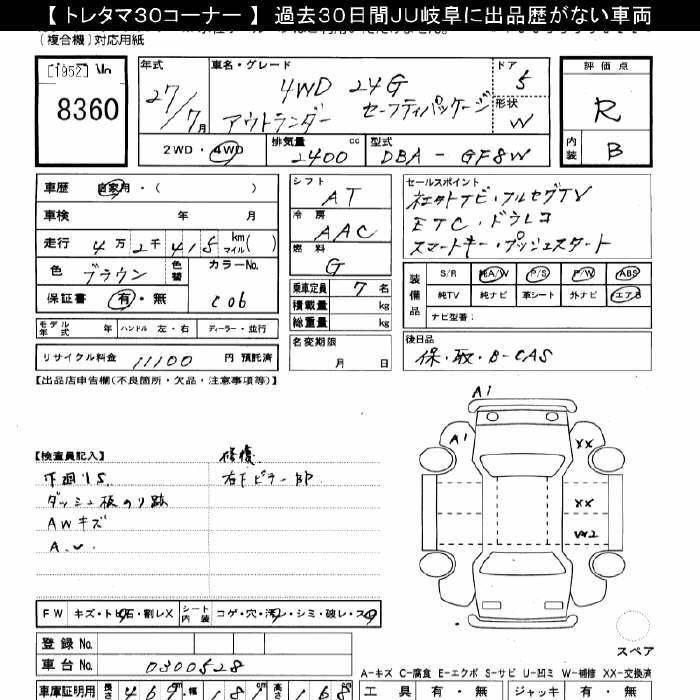 【トレタマ30コーナー】 過去30日間JU岐阜に出品歴がない車両
(複合機)対応用紙
1952 No
8360
年式 27/7月
車名・グレード 4WD 24G
アウトランダー セーフティパッケージ
ドア 5
形状 W
評価点 R
内装 B
2WD・4WD 排気量 2400 cc 型式 DBA-GF8W
車歴 自家用・( )
車検 年 月
走行 4万2千415 km マイル( )
色 ブラウン 色替 カラーNo. C06
保証書 有・無
モデル年式 年 ハンドル 左・右 ディーラー・並行
リサイクル料金 11100 円 預託済
シフト AT
冷房 AAC
燃料 G
乗車定員 7 名
積載量 kg
総重量 kg
名変期限 月 日
セールスポイント
社外ナビ・フルセグTV
ETC・ドラレコ
スマートキー・プッシュスタート
装備品 S/R 純A/W P/S P/W ABS
純TV 純ナビ 革シート 外ナビ エアB
ナビ型番:
後日品
保・取・B-CAS
【出品店申告欄(不良箇所・欠品・注意事項等)】
【検査員記入】
下回りS
ダッシュ板のり跡
AWキズ
A.
修復
右下ピラーBP
A1
A1
XX
XX
W2
スペア
FW キズ・トビ石・割レX シート内装 コゲ・穴・汚レ・シミ・破レ・スレ
登録No.
車台No. 0300528
A-キズ C-腐食 E-エクボ S-サビ U-凹ミ W-補修 XX-交換済
車庫証明用 長さ 469 幅 181 高さ 168
工具 有・無 ジャッキ 有・無